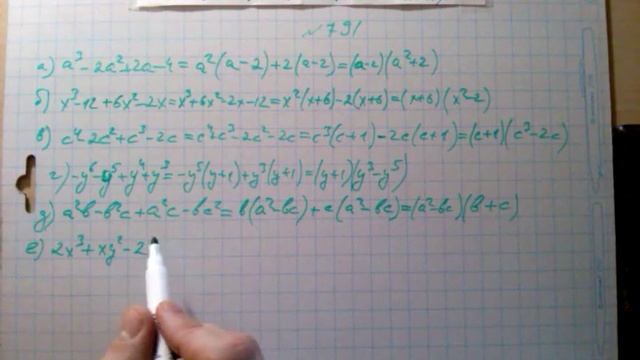 № 791
а) a³-2a²+2a-4=a²(a-2)+2(a-2)=(a-2)(a²+2)
б) x³-12+6x²-2x=x³+6x²-2x-12=x²(x+6)-2(x+6)=(x+6)(x²-2)
в) c⁴-2c²+c³-2c=c⁴+c³-2c²-2c=c³(c+1)-2c(c+1)=(c+1)(c³-2c)
г) -y⁶-y⁵+y⁴+y³=-y⁵(y+1)+y³(y+1)=(y+1)(y³-y⁵)
д) a²b-b²c+a²c-bc²=b(a²-bc)+c(a²-bc)=(a²-bc)(b+c)
е) 2x³+xy²-2